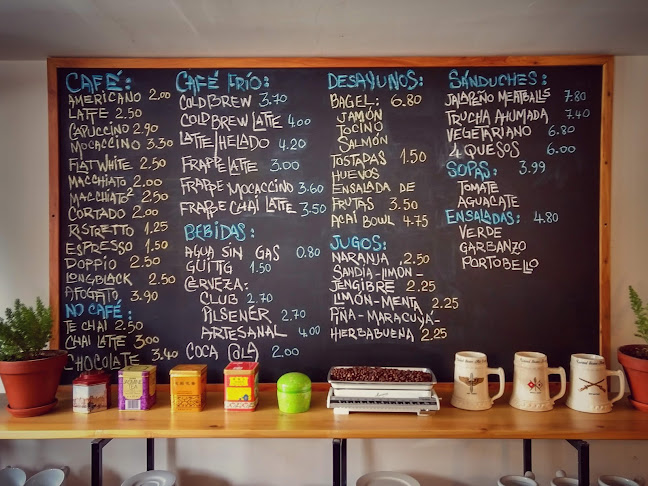 CAFÉ:
AMERICANO 2.00
LATTE 2.50
CAPUCCINO 2.90
MOCACCINO 3.30
FLAT WHITE 2.50
MACCHIATO 2.00
MACCHIATO² 2.50
CORTADO 2.00
RISTRETTO 1.25
ESPRESSO 1.50
DOPPIO 2.50
LONGBLACK 2.50
AFOGATO 3.90
NO CAFÉ:
TE CHAI 2.50
CHAI LATTE 3.00
CHOCOLATE 3.40
CAFÉ FRÍO:
COLDBREW 3.70
COLD BREW LATTE 4.00
LATTE/HELADO 4.20
FRAPPE LATTE 3.00
FRAPPE MOCACCINO 3.60
FRAPPE CHAI LATTE 3.50
BEBIDAS:
AGUA SIN GAS 0.80
GÜITIG 1.50
CERVEZA:
CLUB 2.70
PILSENER 2.70
ARTESANAL 4.00
COCA (@LA) 2.00
DESAYUNOS:
BAGEL: 6.80
JAMÓN
TOCINO
SALMÓN
TOSTADAS 1.50
HUEVOS
ENSALADA DE
FRUTAS 3.50
AÇAÍ BOWL 4.75
JUGOS:
NARANJA 2.50
SANDIA-LIMÓN-
JENGIBRE 2.25
LIMÓN-MENTA 2.25
PIÑA-MARACUYÁ-
HIERBABUENA 2.25
SÁNDUCHES:
JALAPEÑO MEATBALLS 7.80
TRUCHA AHUMADA 7.40
VEGETARIANO 6.80
4 QUESOS 6.00
SOPAS: 3.99
TOMATE
AGUACATE
ENSALADAS: 4.80
VERDE
GARBANZO
PORTOBELLO